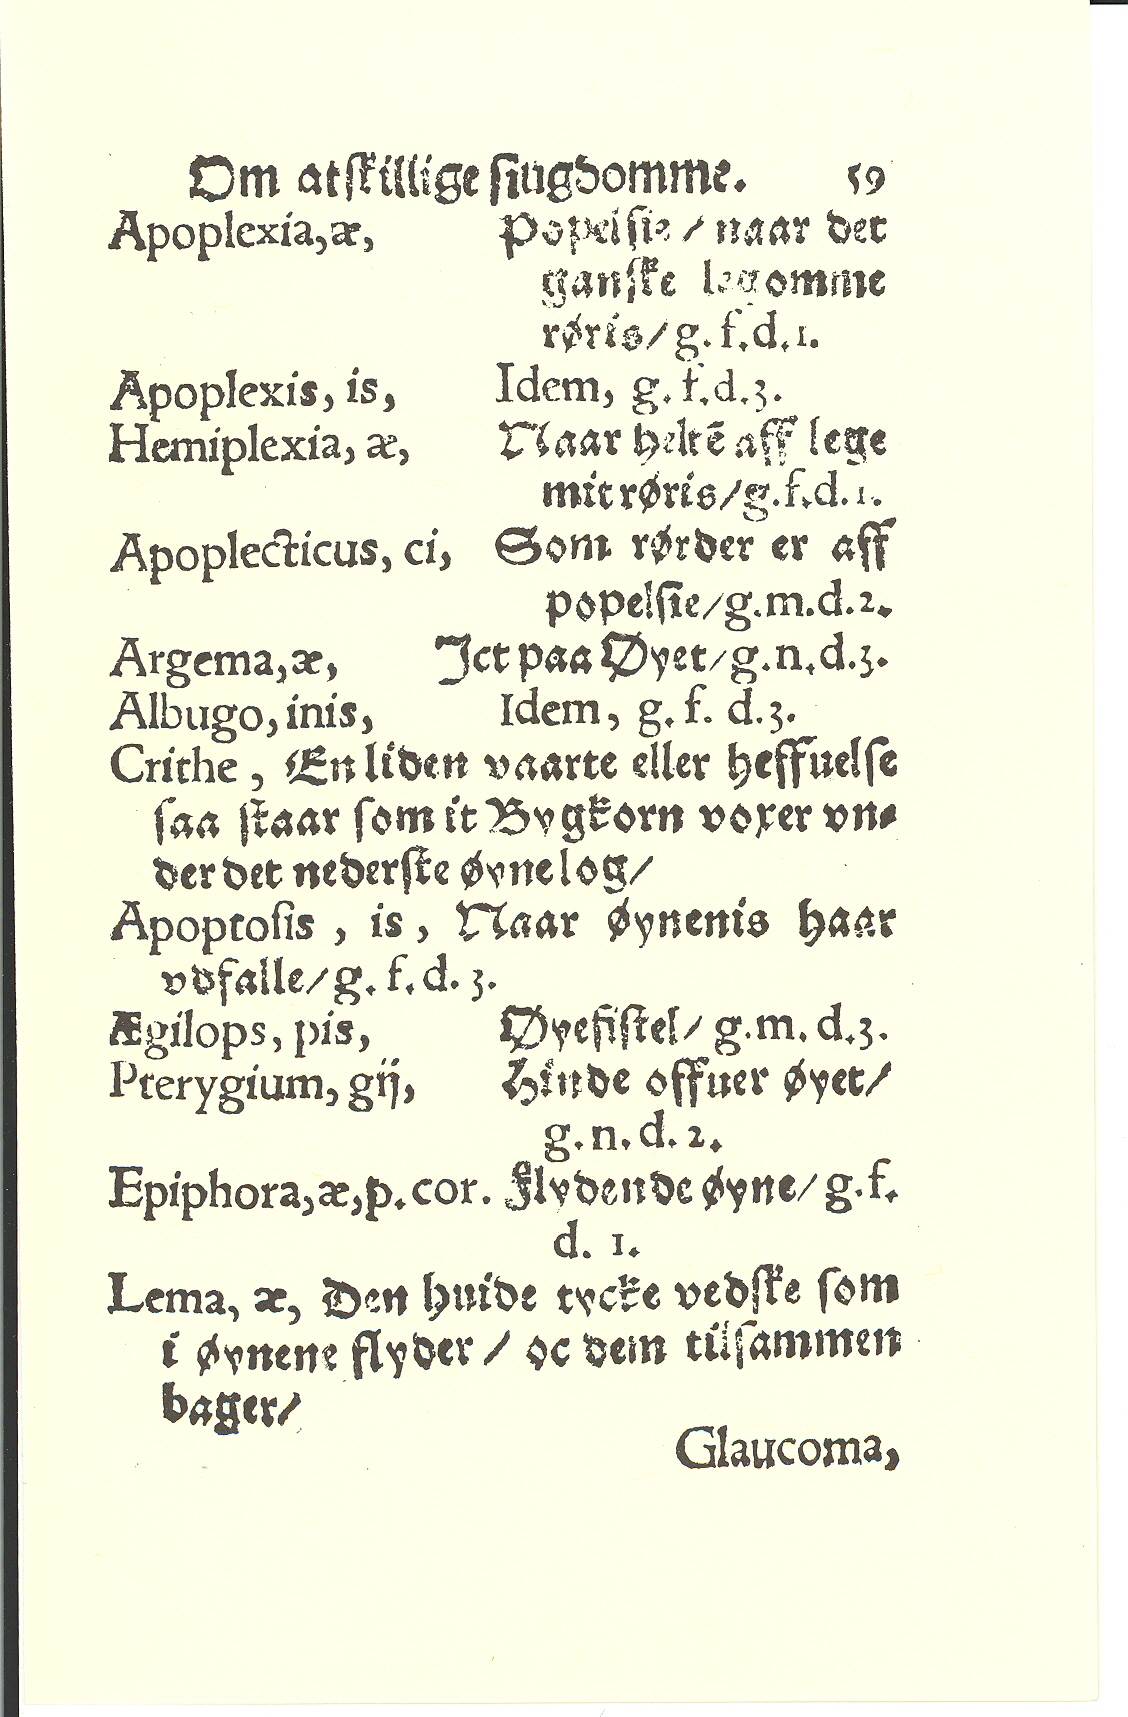 Om atſkillige ſiugdomme. 59
Apoplexia,æ, Popelſie / naar det
ganſke legomme
røris/g.f.d.1.
Apoplexis, is, Idem, g.f.d.3.
Hemiplexia, æ, Naar helte̅ aff lege
mit røris/g.f.d.1.
Apoplecticus, ci, Som rørder er aff
popelſie/g.m.d.2.
Argema,æ, Ict paa Øyet/g.n.d.3.
Albugo, inis, Idem, g. f. d.3.
Crithe, En liden vaarte eller heffuelſe
ſaa ſtaar ſom it Bygkorn voxer vn⸗
der det nederſte øynelog/
Apoptoſis, is, Naar øynenis haar
vdfalle/g. f. d. 3.
Ægilops, pis, Øyefiſtel/ g.m. d.3.
Pterygium, gij, Hinde offuer øyet/
g.n.d.2.
Epiphora,æ,p.cor. Flydende øyne/g.f.
d. 1.
Lema, æ, Den huide tycke vedſke ſom
i øynene flyder / oc dem tilſammen
bager/
Glaucoma,